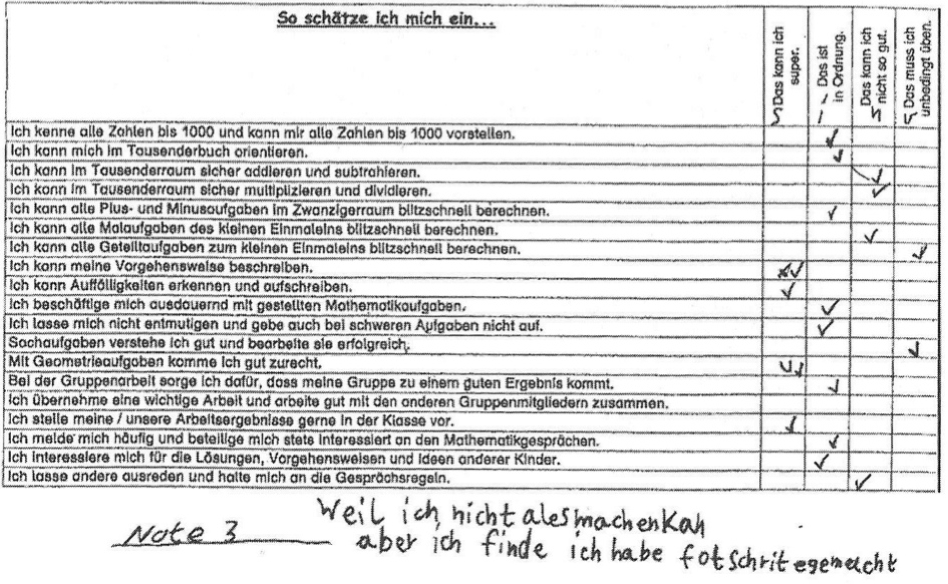 So schätze ich mich ein...
Das kann ich super.
Das ist in Ordnung.
Das kann ich nicht so gut.
Das muss ich unbedingt üben.
Ich kenne alle Zahlen bis 1000 und kann mir alle Zahlen bis 1000 vorstellen.
Ich kann mich im Tausenderbuch orientieren.
Ich kann im Tausenderraum sicher addieren und subtrahieren.
Ich kann im Tausenderraum sicher multiplizieren und dividieren.
Ich kann alle Plus- und Minusaufgaben im Zwanzigerraum blitzschnell berechnen.
Ich kann alle Malaufgaben des kleinen Einmaleins blitzschnell berechnen.
Ich kann alle Geteiltaufgaben zum kleinen Einmaleins blitzschnell berechnen.
Ich kann meine Vorgehensweise beschreiben.
Ich kann Auffälligkeiten erkennen und aufschreiben.
Ich beschäftige mich ausdauernd mit gestellten Mathematikaufgaben.
Ich lasse mich nicht entmutigen und gebe auch bei schweren Aufgaben nicht auf.
Sachaufgaben verstehe ich gut und bearbeite sie erfolgreich.
Mit Geometrieaufgaben komme ich gut zurecht.
Bei der Gruppenarbeit sorge ich dafür, dass meine Gruppe zu einem guten Ergebnis kommt.
Ich übernehme eine wichtige Arbeit und arbeite gut mit den anderen Gruppenmitgliedern zusammen.
Ich stelle meine / unsere Arbeitsergebnisse gerne in der Klasse vor.
Ich melde mich häufig und beteilige mich stets interessiert an den Mathematikgesprächen.
Ich interessiere mich für die Lösungen, Vorgehensweisen und Ideen anderer Kinder.
Ich lasse andere ausreden und halte mich an die Gesprächsregeln.
Note 3
Weil ich nicht ales machen kan
aber ich finde ich habe fotschritegemacht